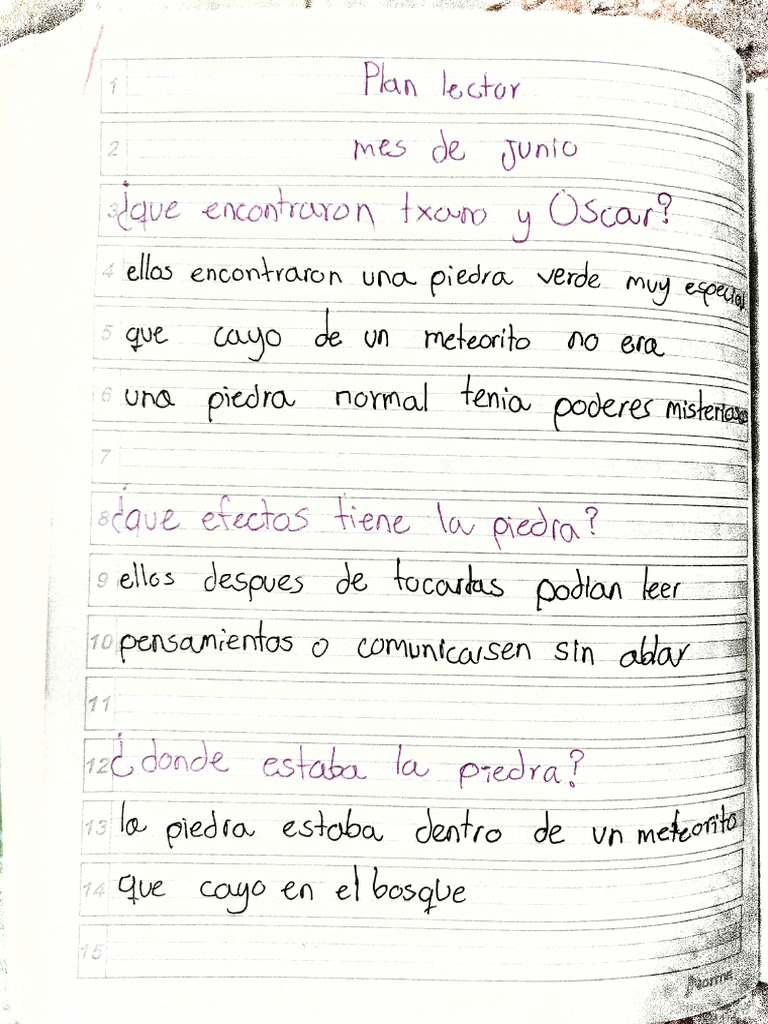 1 Plan lector
2 mes de junio
3 ¿que encontraron txano y Óscar?
4 ellos encontraron una piedra verde muy especial
5 que cayo de un meteorito no era
6 una piedra normal tenia poderes misteriosos
7
8 ¿que efectos tiene la piedra?
9 ellos despues de tocarlas podian leer
10 pensamientos o comunicarsen sin ablar
11
12 ¿donde estaba la piedra?
13 la piedra estaba dentro de un meteorito
14 que cayo en el bosque
15
Norma